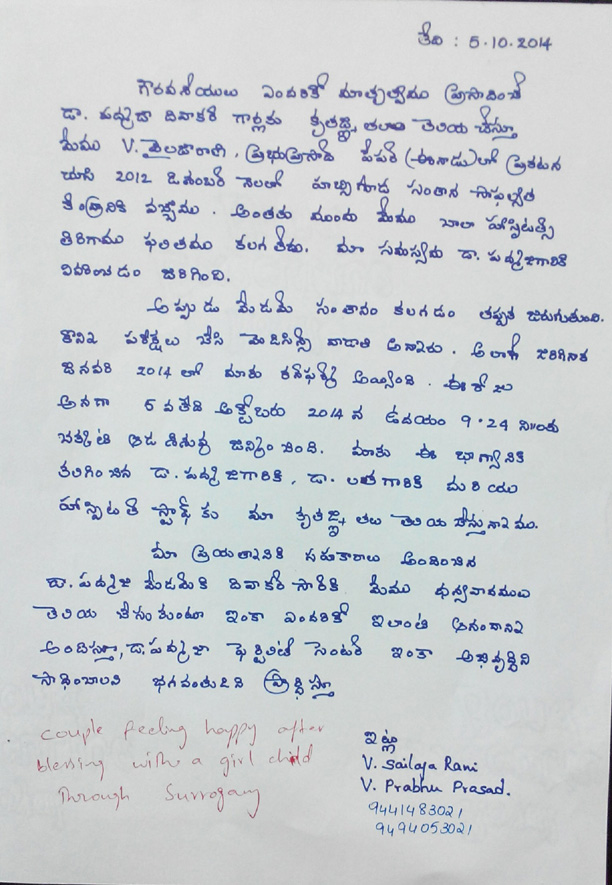 తేది : 5.10.2014
గౌరవనీయులు ఎందరికో మాతృత్వము ప్రసాదించే
డా. పద్మజా దివాకర్ గార్లకు కృతజ్ఞతలు తెలియచేస్తూ
మేము V. శైలజారాణి, ప్రభుప్రసాద్ పేపర్ (ఈనాడు)లో ప్రకటన
చూసి 2012 డిశంబర్ నెలలో హబ్సిగూడ సంతాన సాఫల్యత
కేంద్రానికి వచ్చాము. అంతకు ముందు మేము చాలా హాస్పిటల్స్
తిరిగాము ఫలితము కలగలేదు. మా సమస్యను డా. పద్మజగారికి
వివరించడం జరిగింది.
అప్పుడు మేడమ్ సంతానం కలగడం తప్పక జరుగుతుంది.
కొన్ని పరీక్షలు చేసి మెడిసిన్స్ వాడాలి అన్నారు. అలాగే జరిగినాక
జనవరి 2014 లో మాకు కన్ఫర్మ్ అయ్యింది. ఈ రోజు
అనగా 5 వతేది అక్టోబరు 2014 న ఉదయం 9.24 ని॥లకు
చక్కటి ఆడ శిశువు జన్మించింది. మాకు ఈ భాగ్యానికి
కలిగించిన డా. పద్మజగారికి, డా. లతగారికి మరియు
హాస్పిటల్ స్టాఫ్ కు మా కృతజ్ఞతలు తెలియచేస్తున్నాము.
మా ప్రయత్నానికి సహకారాలు అందించిన
డా. పద్మజ మేడమ్‌కి దివాకర్ సార్‌కి మేము ధన్యవాదములు
తెలియ చేసుకుంటూ ఇంకా ఎందరికో ఇలాంటి ఆనందాన్ని
అందిస్తూ, డా. పద్మజా ఫెర్టిలిటీ సెంటర్ ఇంకా అభివృద్ధిని
సాధించాలని భగవంతుడిని ప్రార్థిస్తూ
couple feeling happy after
blessing with a girl child
Through Surrogacy
ఇట్లు
V. Sailaja Rani
V. Prabhu Prasad.
9441483021
9494053021